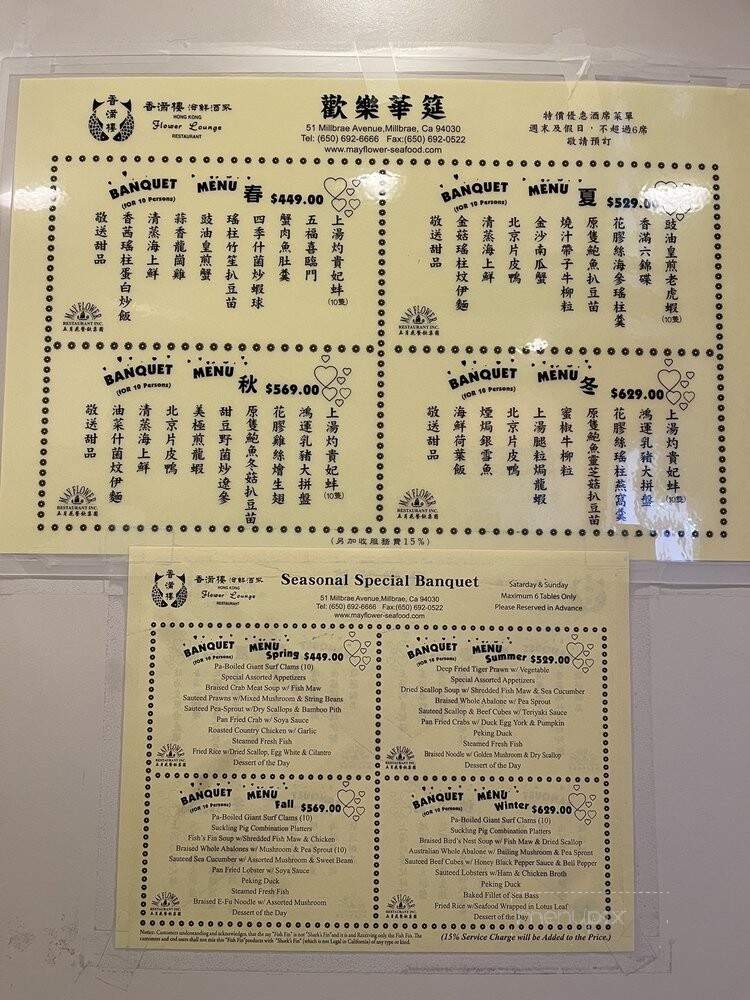 香滿樓
香滿樓 海鮮酒家
HONG KONG
Flower Lounge
RESTAURANT
歡樂華筵
51 Millbrae Avenue,Millbrae, Ca 94030
Tel: (650) 692-6666 Fax:(650) 692-0522
www.mayflower-seafood.com
特價優惠酒席菜單
週末及假日，不超過6席
敬請預訂
BANQUET MENU 春 $449.00
(FOR 10 Persons)
上湯灼貴妃蚌(10隻)
五福喜臨門
蟹肉魚肚羹
四季什菌炒蝦球
瑤柱竹笙扒豆苗
豉油皇煎蟹
蒜香龍崗雞
清蒸海上鮮
香茜瑤柱蛋白炒飯
敬送甜品
MAYFLOWER
RESTAURANT INC.
五月花餐飲集團
BANQUET MENU 夏 $529.00
(FOR 10 Persons)
豉油皇煎老虎蝦(10隻)
香滿六錦碟
花膠絲海參瑤柱羹
原隻鮑魚扒豆苗
燒汁帶子牛柳粒
金沙南瓜蟹
北京片皮鴨
清蒸海上鮮
金菇瑤柱炆伊麵
敬送甜品
MAYFLOWER
RESTAURANT INC.
五月花餐飲集團
BANQUET MENU 秋 $569.00
(FOR 10 Persons)
上湯灼貴妃蚌(10隻)
鴻運乳豬大拼盤
花膠雞絲燴生翅
原隻鮑魚冬菇扒豆苗
甜豆野菌炒遼參
美極煎龍蝦
北京片皮鴨
清蒸海上鮮
油菜什菌炆伊麵
敬送甜品
MAYFLOWER
RESTAURANT INC.
五月花餐飲集團
BANQUET MENU 冬 $629.00
(FOR 10 Persons)
上湯灼貴妃蚌(10隻)
鴻運乳豬大拼盤
花膠絲瑤柱燕窩羹
原隻鮑魚靈芝菇扒豆苗
蜜椒牛柳粒
上湯腿粒焗龍蝦
北京片皮鴨
煙焗銀雪魚
海鮮荷葉飯
敬送甜品
MAYFLOWER
RESTAURANT INC.
五月花餐飲集團
(另加收服務費15%)
香滿樓
香滿樓 海鮮酒家
HONG KONG
Flower Lounge
RESTAURANT
Seasonal Special Banquet
51 Millbrae Avenue,Millbrae, Ca 94030
Tel: (650) 692-6666 Fax:(650) 692-0522
www.mayflower-seafood.com
Satarday & Sunday
Maximum 6 Tables Only
Please Reserved in Advance
BANQUET MENU Spring $449.00
(FOR 10 Persons)
Pa-Boiled Giant Surf Clams (10)
Special Assorted Appetizers
Braised Crab Meat Soup w/ Fish Maw
Sauteed Prawns w/Mixed Mushroom & String Beans
Sauteed Pea-Sprout w/Dry Scallops & Bamboo Pith
Pan Fried Crab w/ Soya Sauce
Roasted Country Chicken w/ Garlic
Steamed Fresh Fish
Fried Rice w/Dried Scallop, Egg White & Cilantro
Dessert of the Day
MAYFLOWER
RESTAURANT INC.
五月花餐飲集團
BANQUET MENU Summer $529.00
(FOR 10 Persons)
Deep Fried Tiger Prawn w/ Vegetable
Special Assorted Appetizers
Dried Scallop Soup w/ Shredded Fish Maw & Sea Cucumber
Braised Whole Abalone w/ Pea Sprout
Sauteed Scallop & Beef Cubes w/ Teriyaki Sauce
Pan Fried Crabs w/ Duck Egg York & Pumpkin
Peking Duck
Steamed Fresh Fish
Braised Noodle w/ Golden Mushroom & Dry Scallop
Dessert of the Day
MAYFLOWER
RESTAURANT INC.
五月花餐飲集團
BANQUET MENU Fall $569.00
(FOR 10 Persons)
Pa-Boiled Giant Surf Clams (10)
Suckling Pig Combination Platters
Fish's Fin Soup w/Shredded Fish Maw & Chicken
Braised Whole Abalones w/ Mushroom & Pea Sprout (10)
Sauteed Sea Cucumber w/ Assorted Mushroom & Sweet Beam
Pan Fried Lobster w/ Soya Sauce
Peking Duck
Steamed Fresh Fish
Braised E-Fu Noodle w/ Assorted Mushroom
Dessert of the Day
MAYFLOWER
RESTAURANT INC.
五月花餐飲集團
BANQUET MENU Winter $629.00
(FOR 10 Persons)
Pa-Boiled Giant Surf Clams (10)
Suckling Pig Combination Platters
Braised Bird's Nest Soup w/ Fish Maw & Dried Scallop
Australian Whole Abalone w/ Bailing Mushroom & Pea Sprout
Sauteed Beef Cubes w/ Honey Black Pepper Sauce & Bell Pepper
Sauteed Lobsters w/Ham & Chicken Broth
Peking Duck
Baked Fillet of Sea Bass
Fried Rice w/Seafood Wrapped in Lotus Leaf
Dessert of the Day
MAYFLOWER
RESTAURANT INC.
五月花餐飲集團
menupix
Notice: Customers understanding and acknowledges, that the say "Fish Fin" is not "Shark's Fin" and it is and Receiving only the Fish Fin. The
customers and end users shall not mix this "Fish Fin" products with "Shark's Fin" (which is not Legal in California) of any type or kind.
(15% Service Charge will be Added to the Price.)